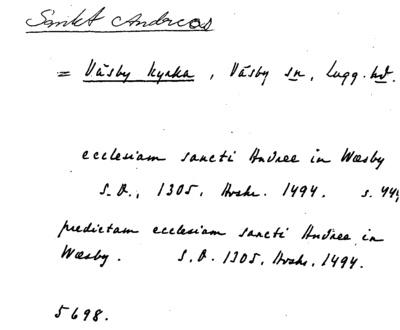 Sankt Andreas
= Väsby kyrka, Väsby sn, Lugg. hd.
ecclesiam sancti Andree in Wæsby
s.d., 1305, Avskr. 1494. s. 44
predictam ecclesiam sancti Andree in
Wæsby. s.d. 1305, Avskr. 1494.
5698.